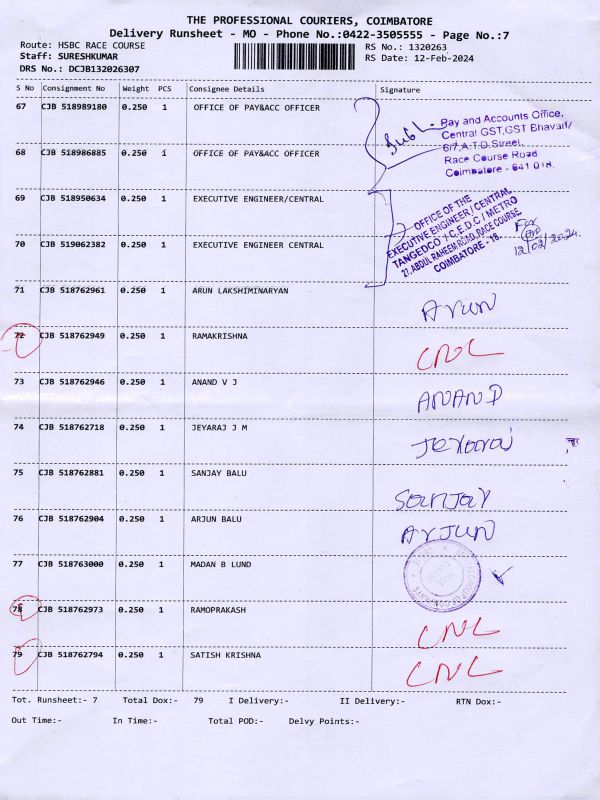 THE PROFESSIONAL COURIERS, COIMBATORE
Delivery Runsheet - MO - Phone No.:0422-3505555 - Page No.:7
Route: HSBC RACE COURSE
RS No.: 1320263
Staff: SURESHKUMAR
RS Date: 12-Feb-2024
DRS No.: DCJB132026307
S No Consignment No Weight PCS Consignee Details Signature
67 CJB 518989180 0.250 1 OFFICE OF PAY&ACC OFFICER
Pay and Accounts Office,
Central GST,GST Bhavan/
6/7,A.T.D.Street,
Race Course Road
Coimbatore - 641 018.
68 CJB 518986885 0.250 1 OFFICE OF PAY&ACC OFFICER
69 CJB 518950634 0.250 1 EXECUTIVE ENGINEER/CENTRAL
OFFICE OF THE
EXECUTIVE ENGINEER / CENTRAL
TANGEDCO / C.E.D.C / METRO
27, ABDUL RAHEEM ROAD, RACE COURSE
COIMBATORE - 18.
For
12/02/2024.
70 CJB 519062382 0.250 1 EXECUTIVE ENGINEER CENTRAL
71 CJB 518762961 0.250 1 ARUN LAKSHIMINARYAN
Arun
72 CJB 518762949 0.250 1 RAMAKRISHNA
CNL
73 CJB 518762946 0.250 1 ANAND V J
ANAND
74 CJB 518762718 0.250 1 JEYARAJ J M
75 CJB 518762881 0.250 1 SANJAY BALU
Sanjay
76 CJB 518762904 0.250 1 ARJUN BALU
ArJUN
77 CJB 518763000 0.250 1 MADAN B LUND
78 CJB 518762973 0.250 1 RAMOPRAKASH
CNL
79 CJB 518762794 0.250 1 SATISH KRISHNA
CNL
Tot. Runsheet:- 7 Total Dox:- 79 I Delivery:- II Delivery:- RTN Dox:-
Out Time:- In Time:- Total POD:- Delvy Points:-